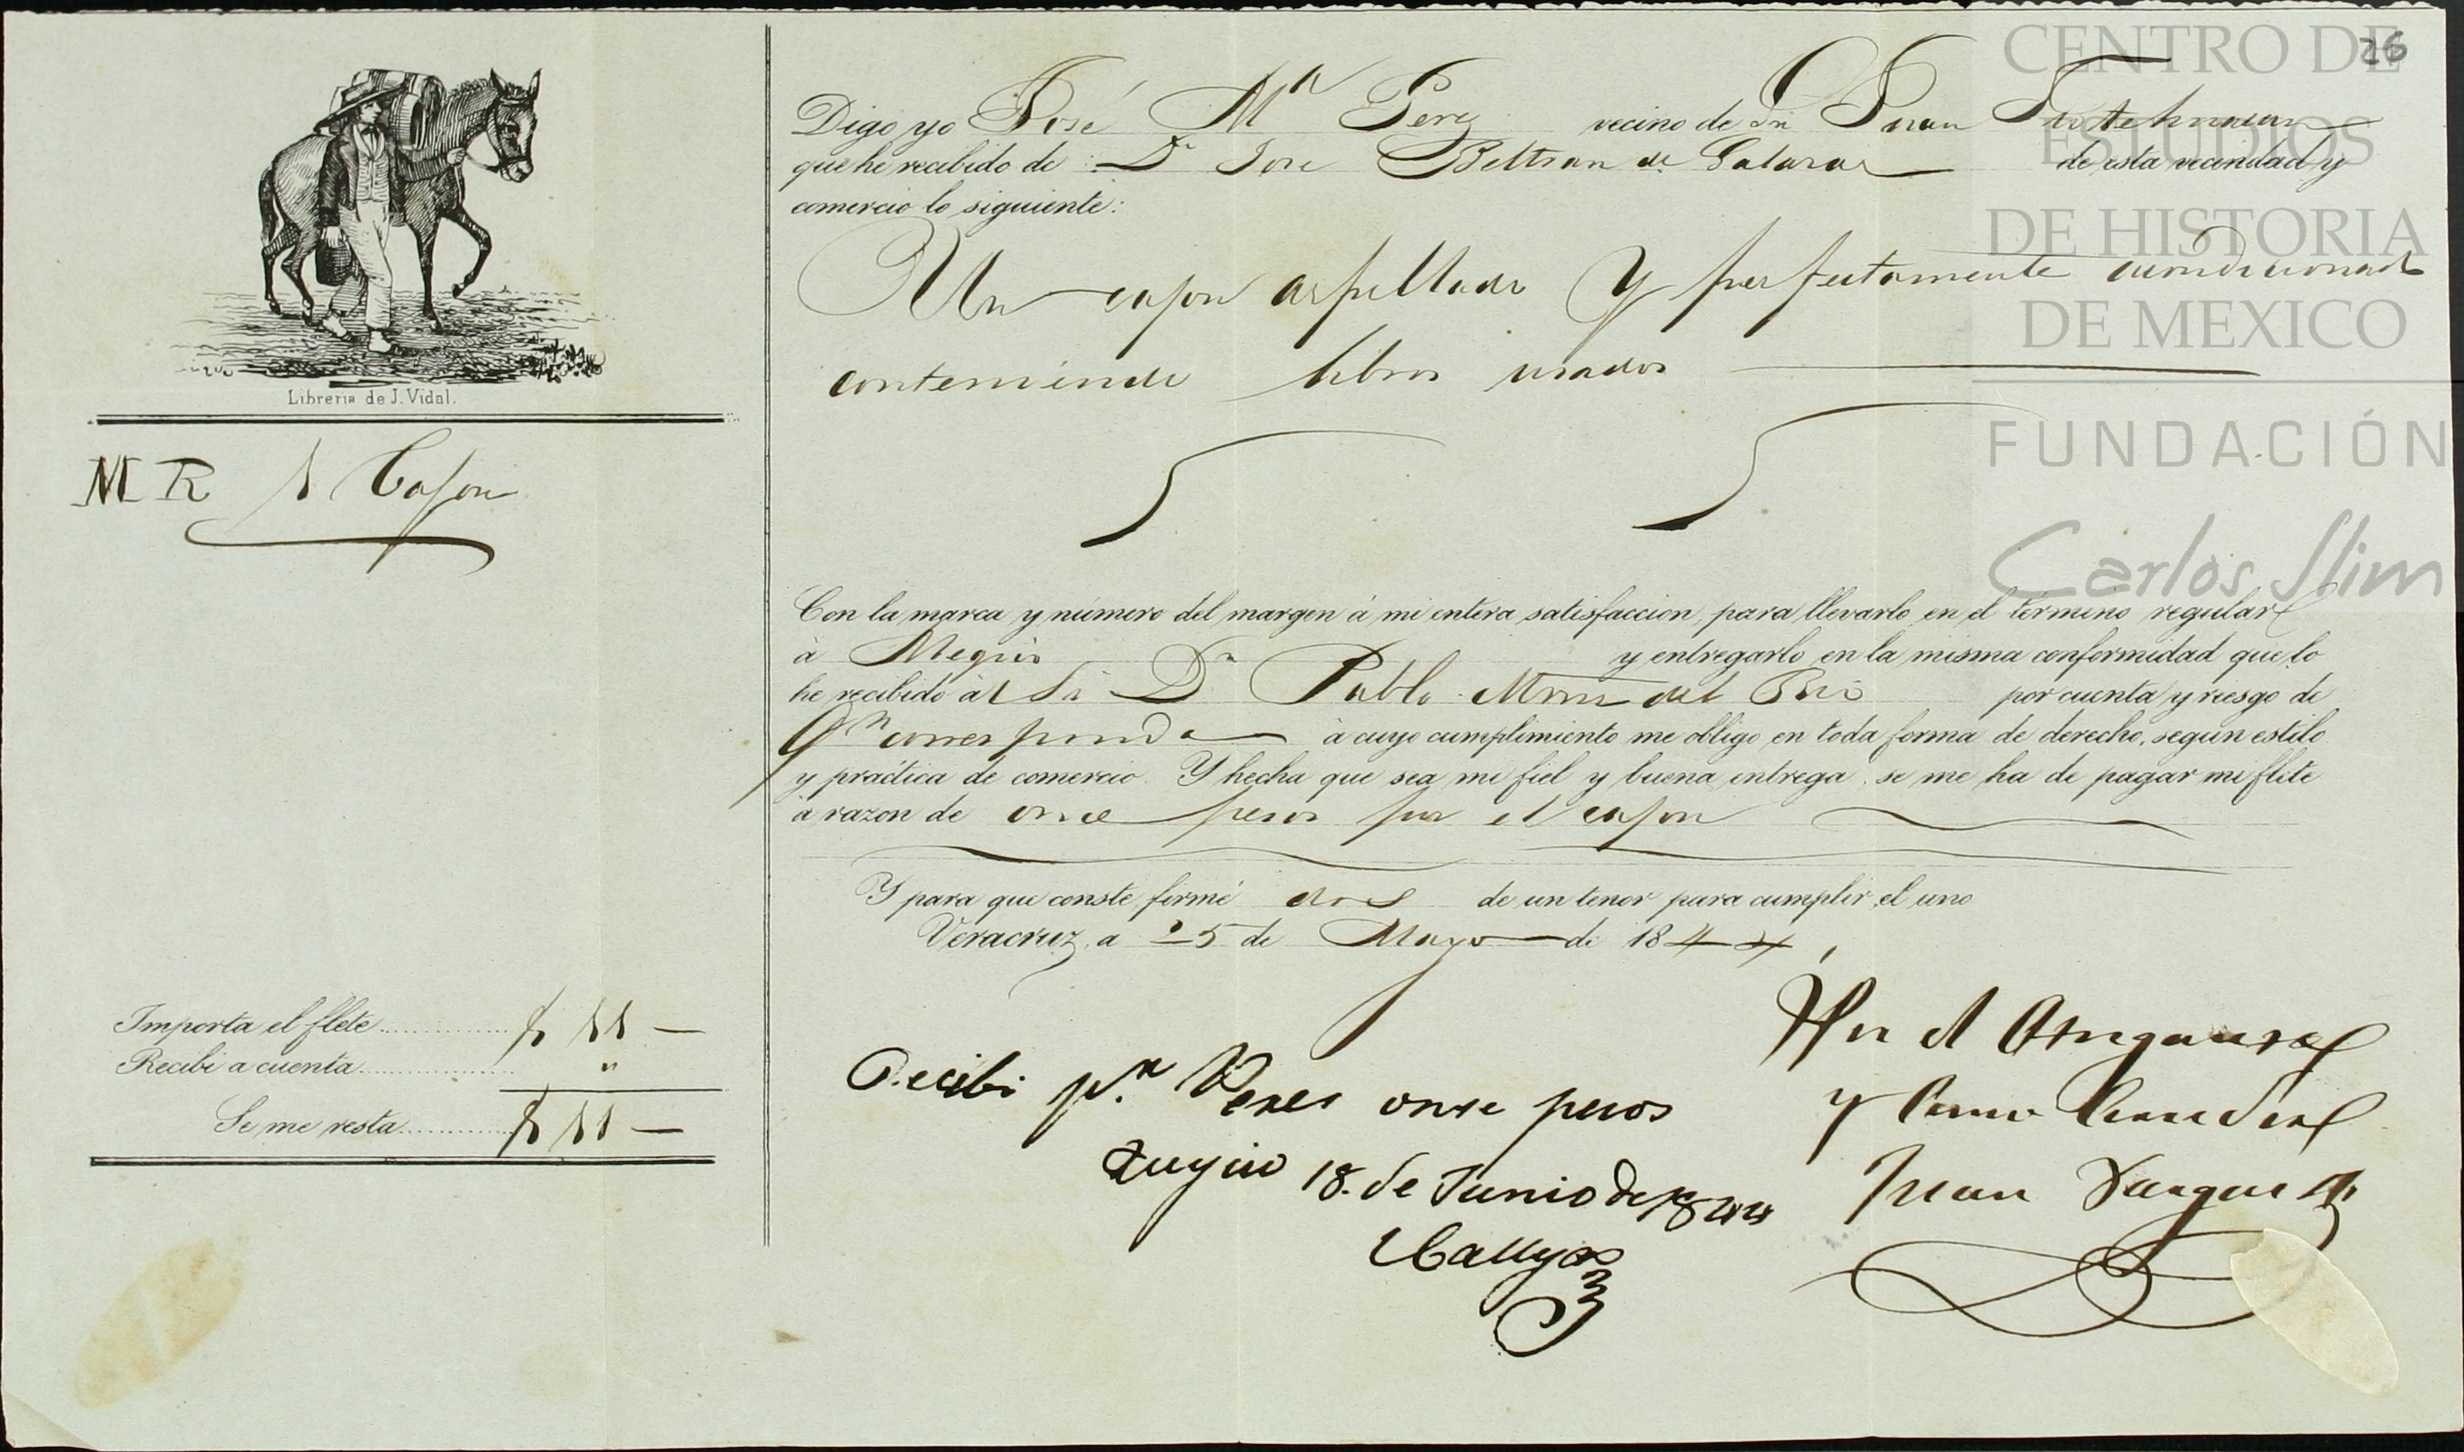 26
CENTRO DE
ESTUDIOS
DE HISTORIA
DE MEXICO
FUNDACIÓN
Carlos Slim
Librería de J. Vidal.
M R 1 Cajon
Importa el flete $ 11 —
Recibi a cuenta "
Se me resta $ 11 —
Digo yo José Mª Perez vecino de Sn Juan
que he recibido de Dn Jose Beltran de Salazar de esta vecindad y
comercio lo siguiente:
Un cajon arpillado y perfectamente
conteniendo libros usados
Con la marca y número del margen á mi entera satisfaccion, para llevarlo en el termino regular
á Megico y entregarlo en la misma conformidad que lo
he recibido á l Sr Dn Pablo del Rio por cuenta y riesgo de
Qn corresponda á cuyo cumplimiento me obligo en toda forma de derecho, segun estilo
y práctica de comercio. Y hecha que sea mi fiel y buena entrega, se me ha de pagar mi flete
á razon de once pesos por el cajon
Y para que conste, firmé dos de un tenor para cumplir el uno
Veracruz, a 25 de Mayo de 1844
Por el
y como
Juan Vargas
Recibi pr. Perez onse pesos
18. de Junio de 1844